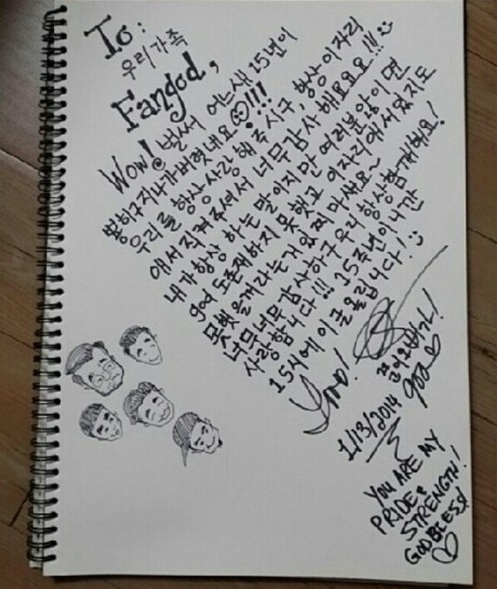 To:
우리가족
Fangod,
Wow! 벌써 어느새 15년이
뿅하구지나가버렷네요!!!
우리를 항상 사랑해 주시구, 항상 이자리
에서 직켜주셔서 너무감사해요요요!!! :)
내가 항상 하는 말이지만 여러분 않이면
god 도존재하지 못했고 이자리에 서있지도
못했을께라는거 있찌 마쌔요~
너무너무 감사하구 우리 항상함께해요!
사랑합니다!!! 15주년이니간
15시에 이글올립니다! :)
1/13/2014
god
YOU ARE MY
PRIDE &
STRENGTH!
GOD BLESS!